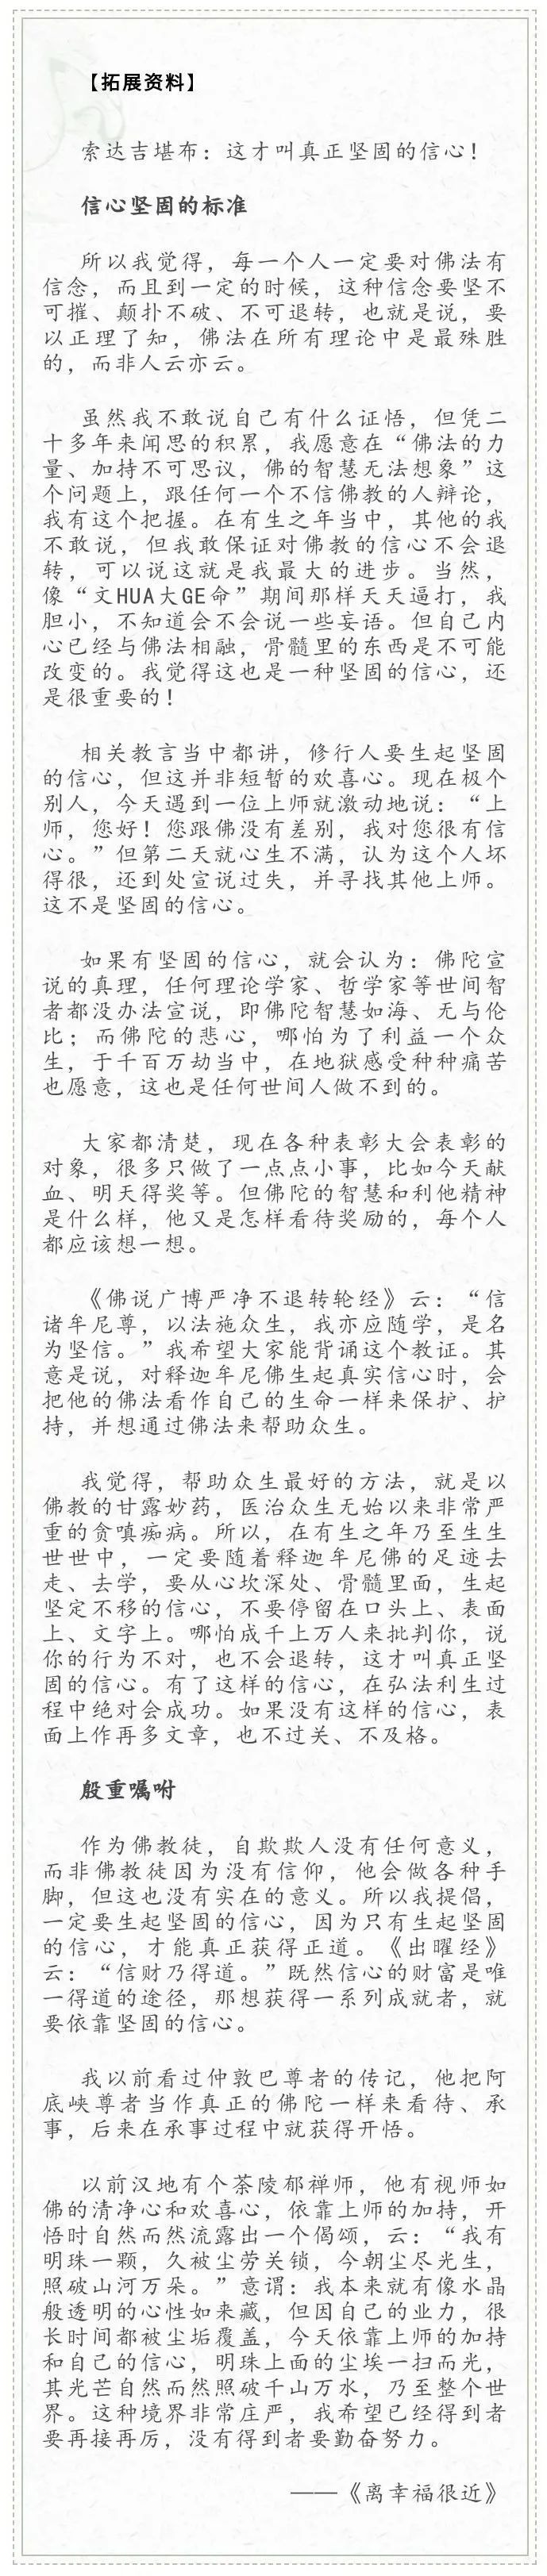 【拓展资料】
索达吉堪布：这才叫真正坚固的信心！
信心坚固的标准
所以我觉得，每一个人一定要对佛法有
信念，而且到一定的时候，这种信念要坚不
可摧、颠扑不破、不可退转，也就是说，要
以正理了知，佛法在所有理论中是最殊胜
的，而非人云亦云。
虽然我不敢说自己有什么证悟，但凭二
十多年来闻思的积累，我愿意在“佛法的力
量、加持不可思议，佛的智慧无法想象”这
个问题上，跟任何一个不信佛教的人辩论，
我有这个把握。在有生之年当中，其他的我
不敢说，但我敢保证对佛教的信心不会退
转，可以说这就是我最大的进步。当然，
像“文HUA大GE命”期间那样天天逼打，我
胆小，不知道会不会说一些妄语。但自己内
心已经与佛法相融，骨髓里的东西是不可能
改变的。我觉得这也是一种坚固的信心，还
是很重要的！
相关教言当中都讲，修行人要生起坚固
的信心，但这并非短暂的欢喜心。现在极个
别人，今天遇到一位上师就激动地说：“上
师，您好！您跟佛没有差别，我对您很有信
心。”但第二天就心生不满，认为这个人坏
得很，还到处宣说过失，并寻找其他上师。
这不是坚固的信心。
如果有坚固的信心，就会认为：佛陀宣
说的真理，任何理论学家、哲学家等世间智
者都没办法宣说，即佛陀智慧如海、无与伦
比；而佛陀的悲心，哪怕为了利益一个众
生，于千百万劫当中，在地狱感受种种痛苦
也愿意，这也是任何世间人做不到的。
大家都清楚，现在各种表彰大会表彰的
对象，很多只做了一点点小事，比如今天献
血、明天得奖等。但佛陀的智慧和利他精神
是什么样，他又是怎样看待奖励的，每个人
都应该想一想。
《佛说广博严净不退转轮经》云：“信
诸牟尼尊，以法施众生，我亦应随学，是名
为坚信。”我希望大家能背诵这个教证。其
意是说，对释迦牟尼佛生起真实信心时，会
把他的佛法看作自己的生命一样来保护、护
持，并想通过佛法来帮助众生。
我觉得，帮助众生最好的方法，就是以
佛教的甘露妙药，医治众生无始以来非常严
重的贪嗔痴病。所以，在有生之年乃至生生
世世中，一定要随着释迦牟尼佛的足迹去
走、去学，要从心坎深处、骨髓里面，生起
坚定不移的信心，不要停留在口头上、表面
上、文字上。哪怕成千上万人来批判你，说
你的行为不对，也不会退转，这才叫真正坚
固的信心。有了这样的信心，在弘法利生过
程中绝对会成功。如果没有这样的信心，表
面上作再多文章，也不过关、不及格。
殷重嘱咐
作为佛教徒，自欺欺人没有任何意义，
而非佛教徒因为没有信仰，他会做各种手
脚，但这也没有实在的意义。所以我提倡，
一定要生起坚固的信心，因为只有生起坚固
的信心，才能真正获得正道。《出曜经》
云：“信财乃得道。”既然信心的财富是唯
一得道的途径，那想获得一系列成就者，就
要依靠坚固的信心。
我以前看过仲敦巴尊者的传记，他把阿
底峡尊者当作真正的佛陀一样来看待、承
事，后来在承事过程中就获得开悟。
以前汉地有个茶陵郁禅师，他有视师如
佛的清净心和欢喜心，依靠上师的加持，开
悟时自然而然流露出一个偈颂，云：“我有
明珠一颗，久被尘劳关锁，今朝尘尽光生，
照破山河万朵。”意谓：我本来就有像水晶
般透明的心性如来藏，但因自己的业力，很
长时间都被尘垢覆盖，今天依靠上师的加持
和自己的信心，明珠上面的尘埃一扫而光，
其光芒自然而然照破千山万水，乃至整个世
界。这种境界非常庄严，我希望已经得到者
要再接再厉，没有得到者要勤奋努力。
——《离幸福很近》